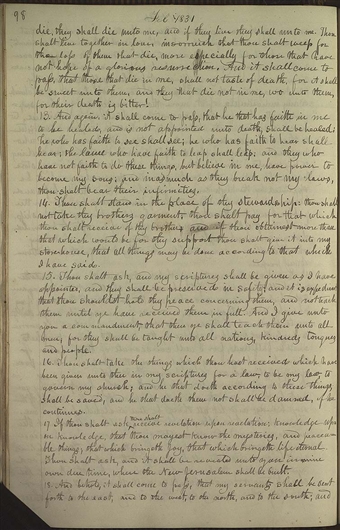 98
die, they shall die unto me, and if they live they shall unto me. Thou
shalt live together in love, insomuch that thou shalt weep for
the loss of them that die, more especially for those that have
not hope of a glorious resurrection. And it shall come to
pass, that those that die in me, shall not taste of death, for it shall
be sweet unto them, and they that die not in me, wo unto them,
for their death is bitter!
13. And again it shall come to pass, that he that has faith in me
to be healed, and is not appointed unto death, shall be healed:
he who has faith to see shall see; he who has faith to hear shall
hear: the lame who have faith to leap shall leap; and they who
have not faith to do these things, but believe in me, have power to
become my sons; and inasmuch as they break not my laws,
thou shalt bear their infirmities.
14. Thou shalt stand in the place of thy stewardship: thou shalt
not take thy brothers garment; thou shalt pay for that which
thou shalt receive of thy brother; and if thou obtainest more than
that which would be for thy support thou shalt give it into my
storehouse, that all things may be done according to that which
I have said.
15. Thou shalt ask, and my scriptures shall be given as I have
appointed, and they shall be preserved in safety; and it is expedient
that thou shouldst hold thy peace concerning them, and not teach
them until ye have received them in full. And I give unto
you a commandment, that then ye shall teach them unto all
men; for they shall be taught unto all nations, kindreds, tongues
and people.
16. Thou shalt take the things which thou hast received which have
been given unto thee in my scriptures for a law, to be my law, to
govern my church; and he that doeth according to these things,
shall be saved, and he that doeth them not shall be damned, if he
continues.
17. If thou shalt ask, thou shalt receive revelation upon revelation, knowledge upon
knowledge, that thou mayest know the mysteries, and peacea-
ble things; that which bringeth joy, that which bringeth life eternal.
Thou shalt ask, and it shall be revealed unto you in mine
own due time, where the New Jerusalem shall be built.
18. And behold, it shall come to pass, that my servants shall be sent
forth to the east, and to the west, to the north, and to the south; and